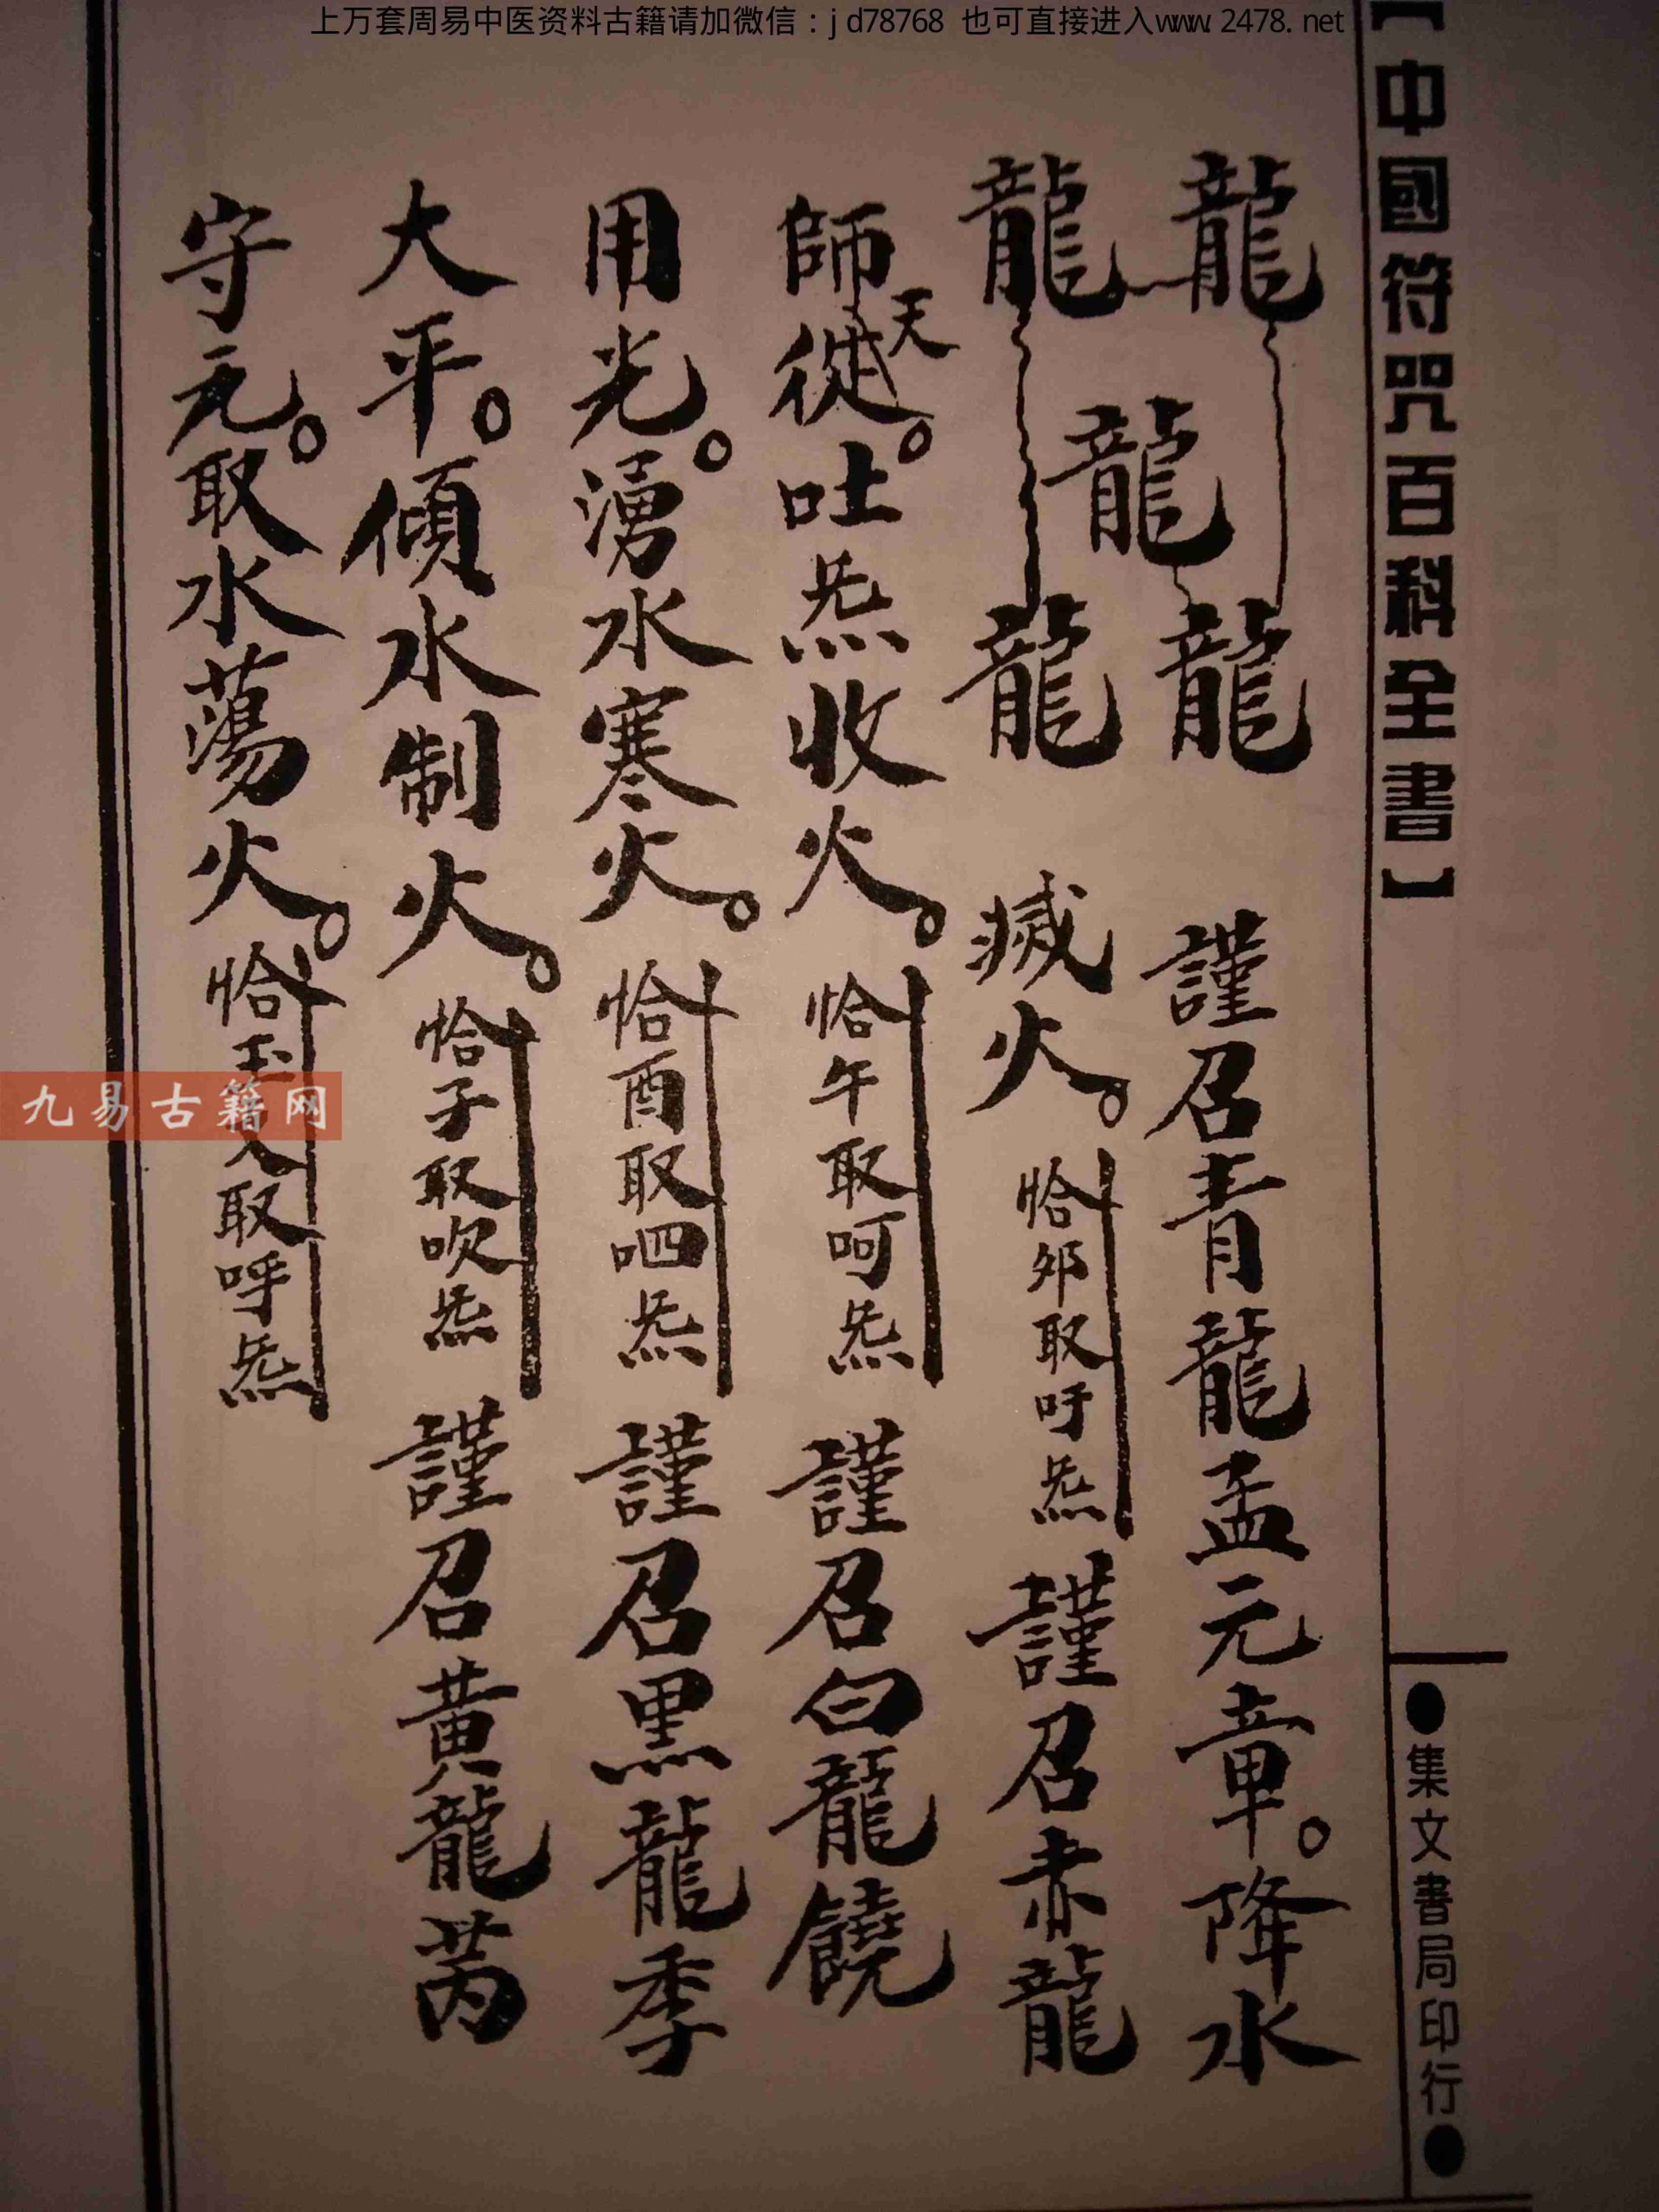 上万套周易中医资料古籍请加微信：jd78768 也可直接进入www.2478.net
【中國符咒百科全書】
●集文書局印行●
龍 龍
龍
龍 龍
謹召青龍孟元章。降水
滅火。恰夘取吁炁 謹召赤龍
師從天。吐炁收火。恰午取呵炁 謹召白龍饒
用光。湧水寒火。恰酉取呬炁 謹召黑龍季
大平。傾水制火。恰子取吹炁 謹召黃龍芮
守元。取水蕩火。恰玉文取呼炁
九易古籍网